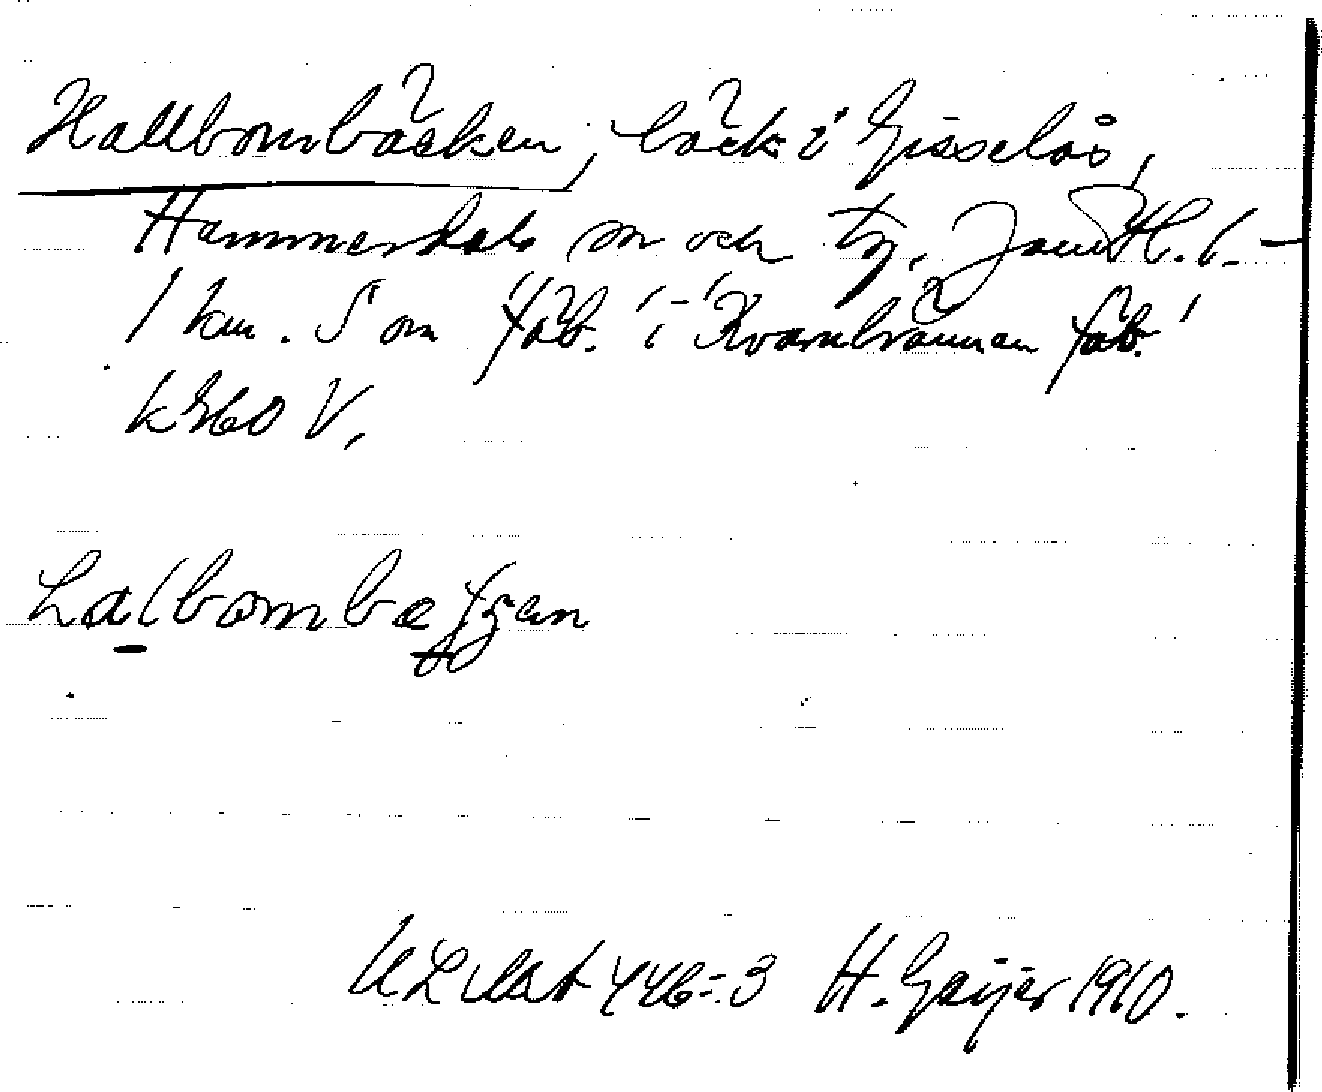 Hallbombäcken, bäck i Gisselås,
Hammerdals sn och tg. Jämtl. l. –
1 km. S om fäb. i Kvarnbrännan fäb.
V.
Lalbombäzen
446:3 H. Geijer 1910.